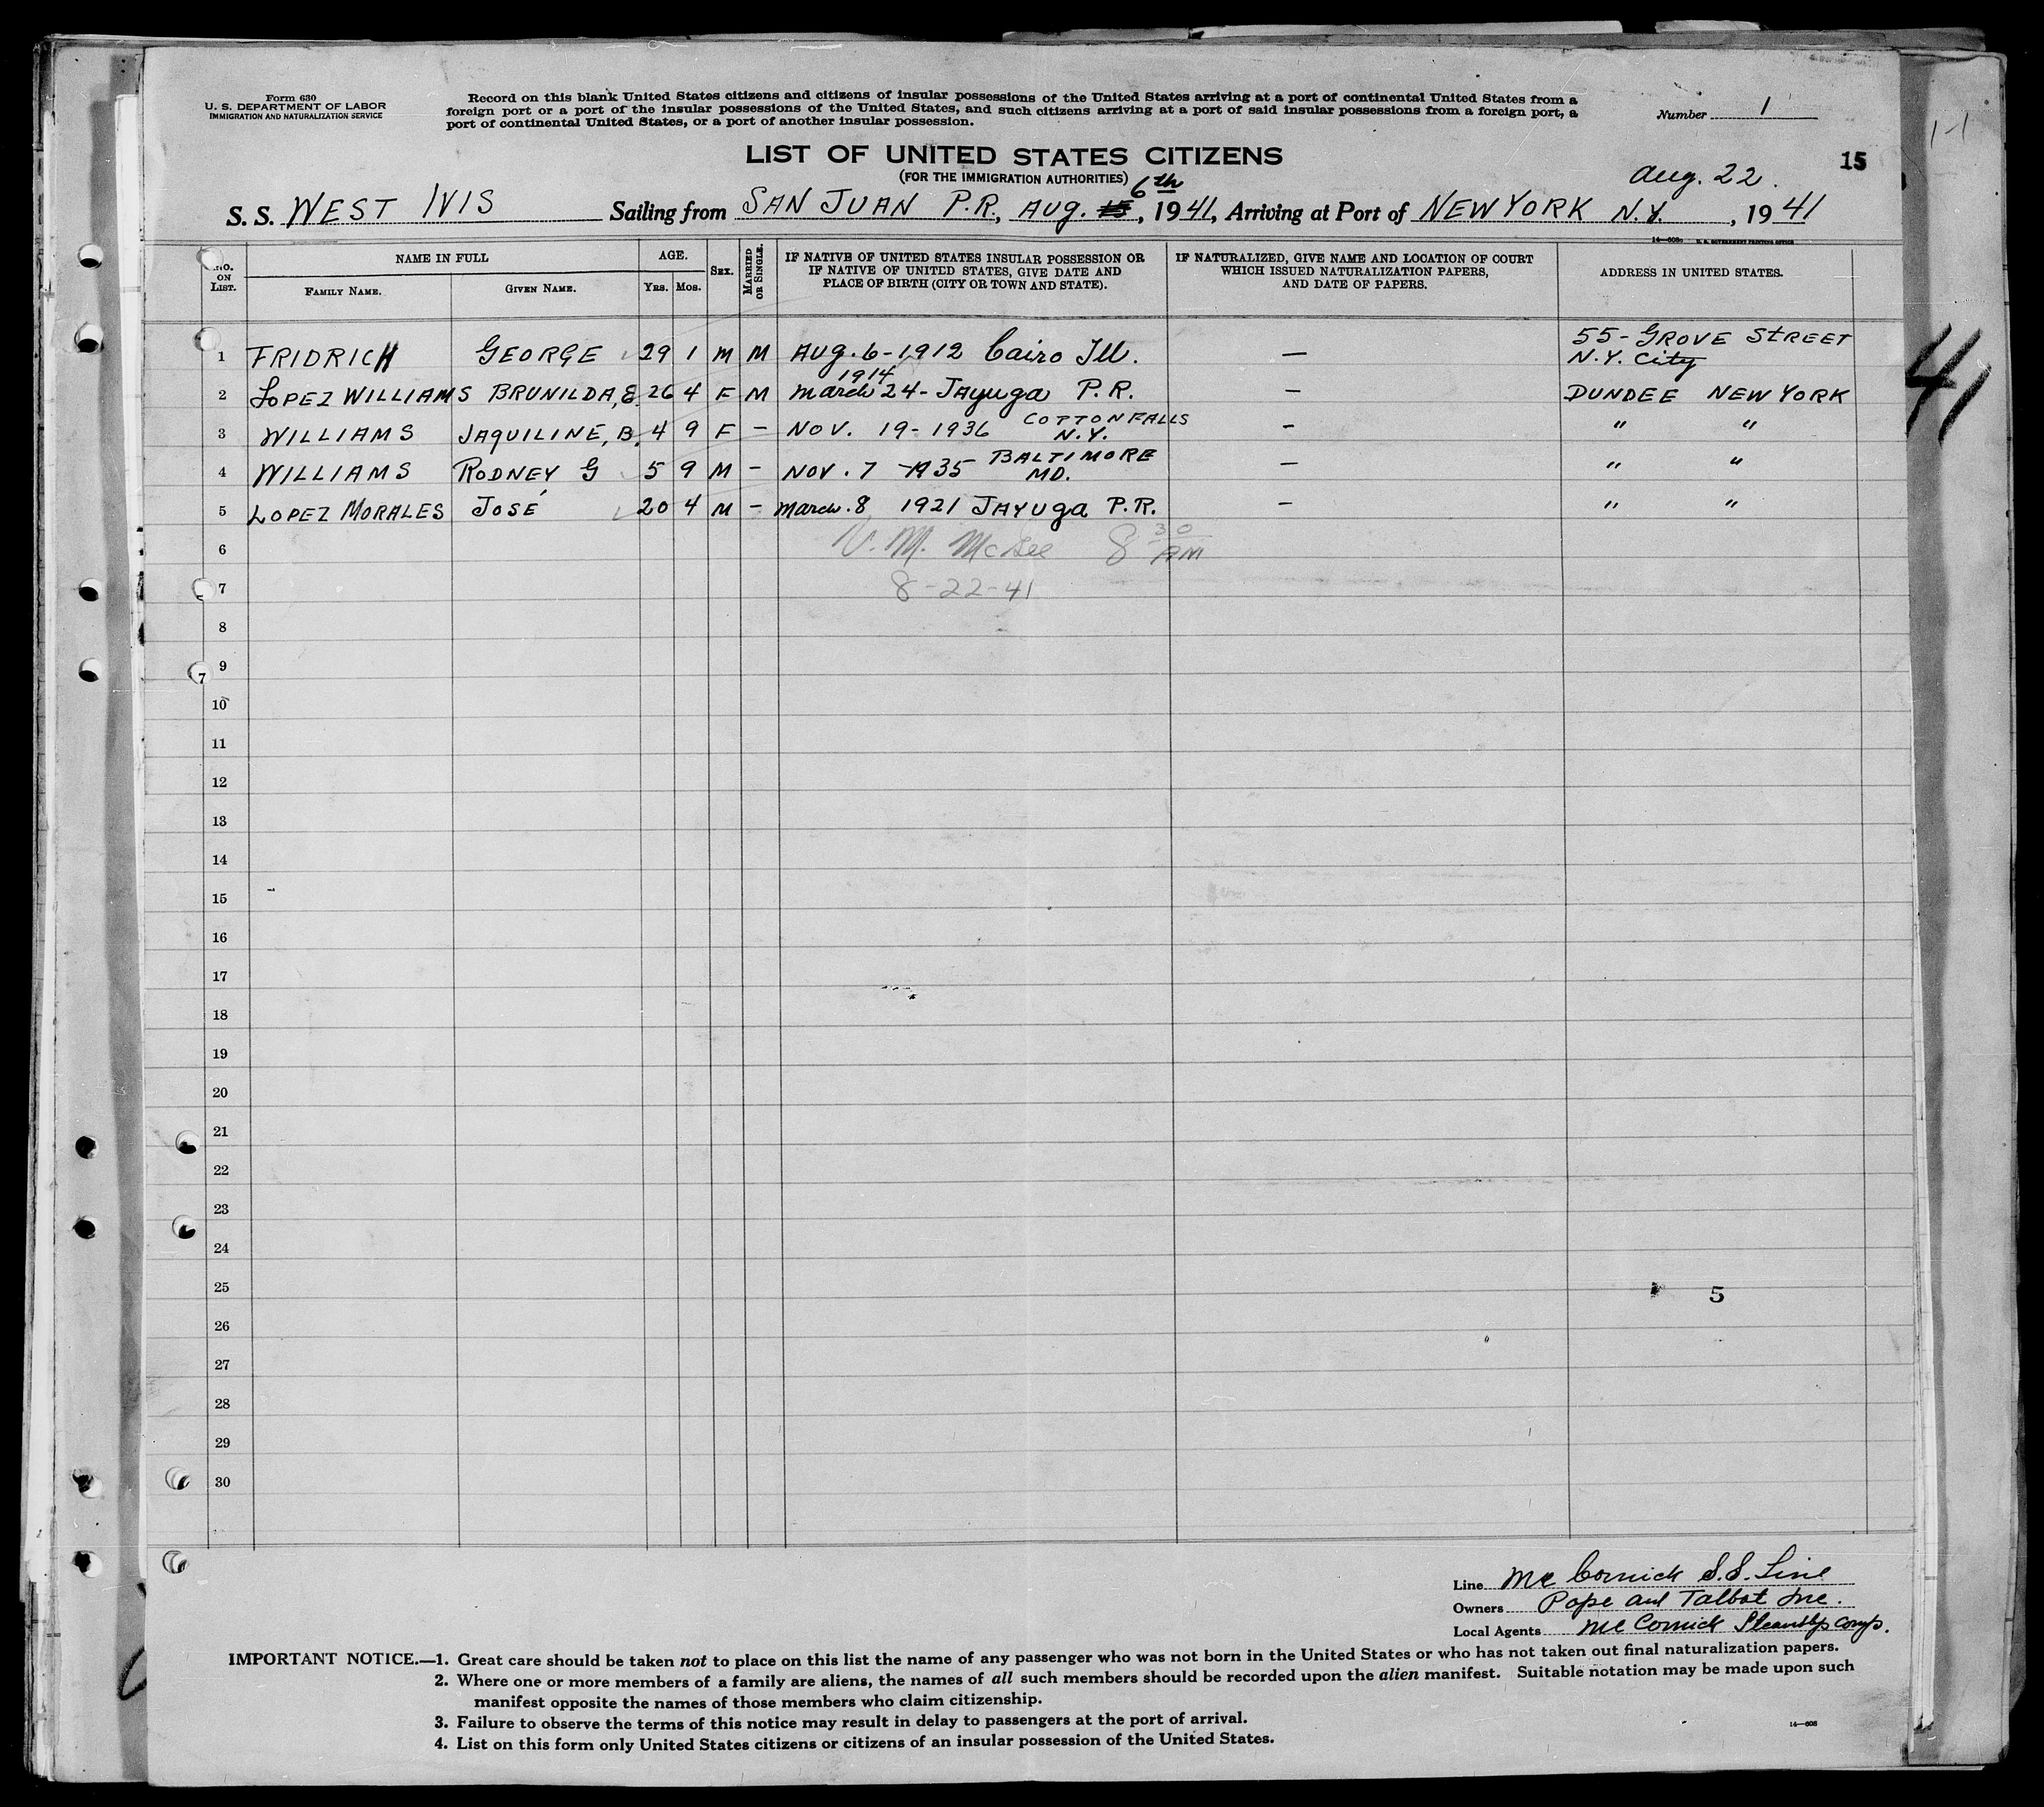 Form 630
U. S. DEPARTMENT OF LABOR
IMMIGRATION AND NATURALIZATION SERVICE
Record on this blank United States citizens and citizens of insular possessions of the United States arriving at a port of continental United States from a
foreign port or a port of the insular possessions of the United States, and such citizens arriving at a port of said insular possessions from a foreign port, a
port of continental United States, or a port of another insular possession.
Number 1
1-1
LIST OF UNITED STATES CITIZENS
(FOR THE IMMIGRATION AUTHORITIES)
15
Aug. 22.
6th
S. S. WEST IVIS Sailing from SAN JUAN P.R., AUG. 15, 1941, Arriving at Port of NEW YORK N.Y. , 1941
14—608 U. S. GOVERNMENT PRINTING OFFICE
NO. ON LIST. NAME IN FULL FAMILY NAME. GIVEN NAME. AGE. YRS. MOS. SEX. MARRIED OR SINGLE. IF NATIVE OF UNITED STATES INSULAR POSSESSION OR IF NATIVE OF UNITED STATES, GIVE DATE AND PLACE OF BIRTH (CITY OR TOWN AND STATE). IF NATURALIZED, GIVE NAME AND LOCATION OF COURT WHICH ISSUED NATURALIZATION PAPERS, AND DATE OF PAPERS. ADDRESS IN UNITED STATES.
1 FRIDRICH GEORGE 29 1 M M AUG. 6-1912 Cairo Ill. — 55-GROVE STREET N.Y. City
2 LOPEZ WILLIAMS BRUNILDA, E. 26 4 F M March 24- 1914 JAYUGA P.R. — DUNDEE NEW YORK
3 WILLIAMS JAQUILINE, B. 4 9 F – NOV. 19-1936 COTTON FALLS N.Y. – " "
4 WILLIAMS RODNEY G 5 9 M – NOV. 7 -1935 BALTIMORE MD. — " "
5 LOPEZ MORALES JOSÉ 20 4 M – March. 8 1921 JAYUGA P.R. – " "
41
6 V. M. McGee 8 30 AM
7 8-22-41
8
9
7
10
11
12
13
14
15
16
17
18
19
20
21
22
23
24
25
5
26
27
28
29
30
Line Mc Cormick S.S. Line
Owners Pope and Talbot Inc.
Local Agents Mc Cormick Steamship Corp.
IMPORTANT NOTICE.—1. Great care should be taken not to place on this list the name of any passenger who was not born in the United States or who has not taken out final naturalization papers.
2. Where one or more members of a family are aliens, the names of all such members should be recorded upon the alien manifest. Suitable notation may be made upon such
manifest opposite the names of those members who claim citizenship.
3. Failure to observe the terms of this notice may result in delay to passengers at the port of arrival.
14—608
4. List on this form only United States citizens or citizens of an insular possession of the United States.